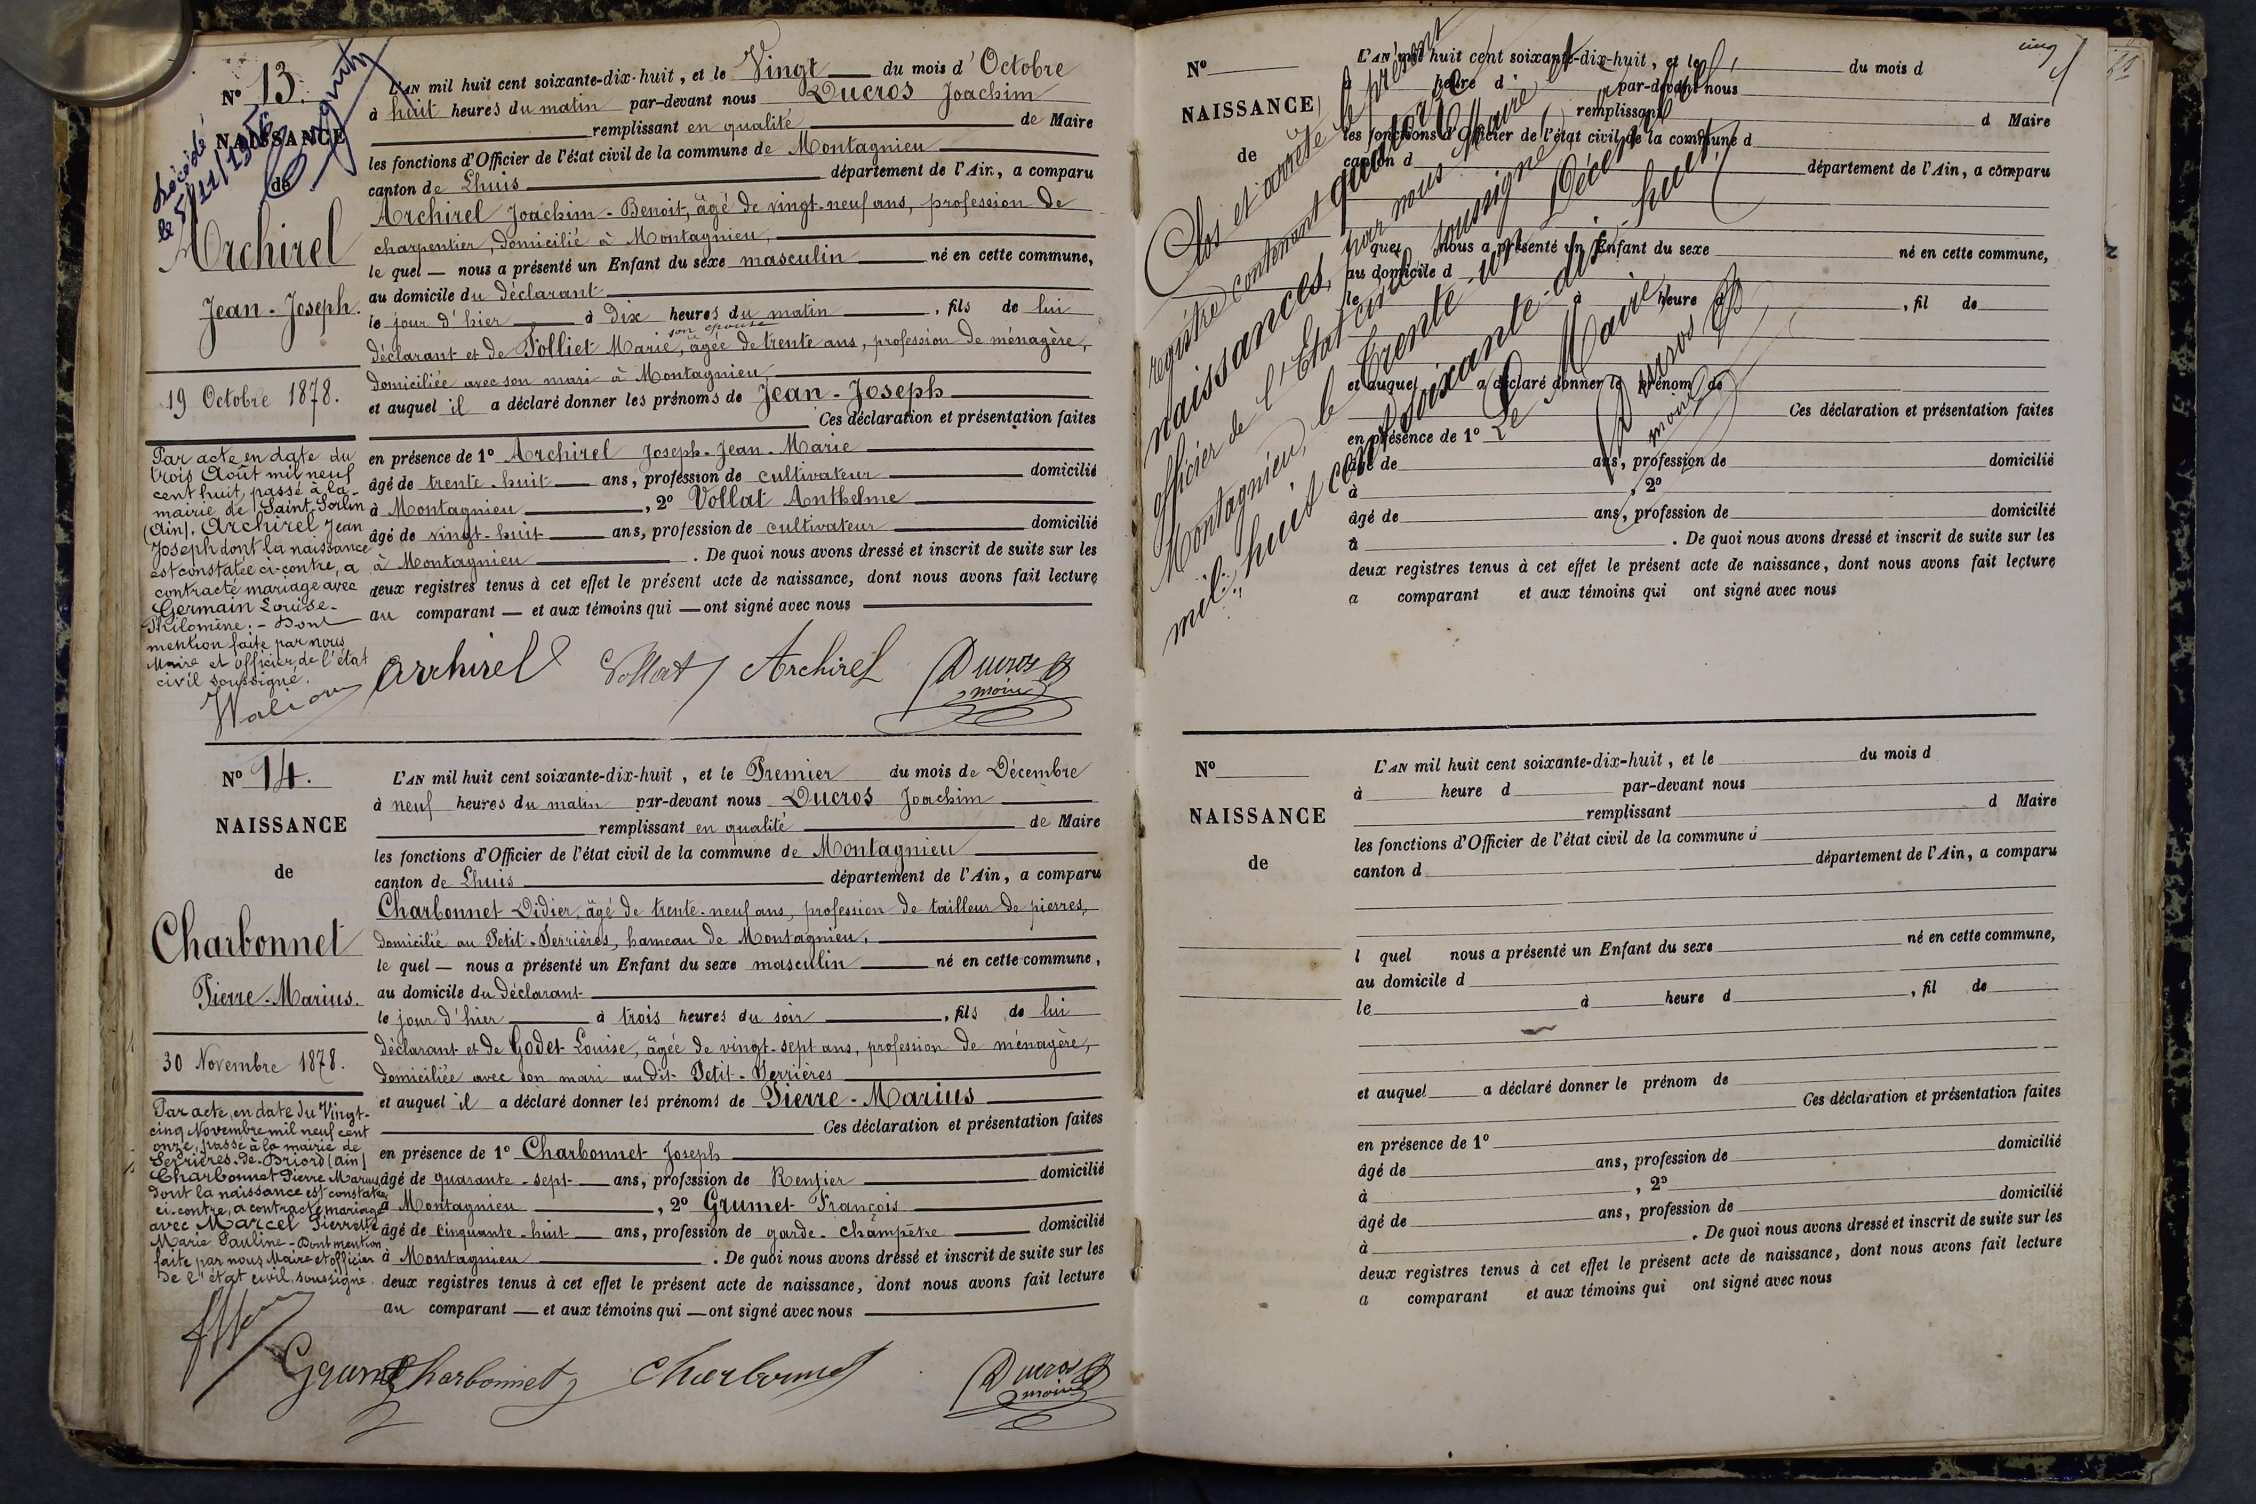 Nº 13.
NAISSANCE
de
Archirel
Jean-Joseph.
19 Octobre 1878.
Décédé
le 5/11/1956
Par acte en date du
trois Août mil neuf
cent huit, passé à la
mairie de Saint-Sorlin
(Ain), Archirel Jean
Joseph dont la naissance
est constatée ci-contre, a
contracté mariage avec
Germain Louise-
Philomène. - Dont
mention faite par nous
Maire et officier de l'état
civil soussigné.
L'AN mil huit cent soixante-dix-huit, et le Vingt du mois d'Octobre
à huit heures du matin par-devant nous Ducros Joachim
remplissant en qualité de Maire
les fonctions d'Officier de l'état civil de la commune de Montagnieu
canton de Lhuis département de l'Ain, a comparu
Archirel Joachim-Benoit, âgé de vingt-neuf ans, profession de
charpentier, domicilié à Montagnieu,
le quel — nous a présenté un Enfant du sexe masculin né en cette commune,
au domicile du déclarant
le jour d'hier à dix heures du matin, fils de lui
son épouse
déclarant et de Tolliet Marie, âgée de trente ans, profession de ménagère,
domiciliée avec son mari à Montagnieu,
et auquel il a déclaré donner les prénoms de Jean-Joseph
Ces déclaration et présentation faites
en présence de 1º Archirel Joseph-Jean-Marie
âgé de trente-huit ans, profession de cultivateur domicilié
à Montagnieu, 2º Vollat Anthelme
âgé de vingt-huit ans, profession de cultivateur domicilié
à Montagnieu. De quoi nous avons dressé et inscrit de suite sur les
deux registres tenus à cet effet le présent acte de naissance, dont nous avons fait lecture
au comparant — et aux témoins qui — ont signé avec nous
Archirel Vollat Archirel Ducros
maire
Nº 14.
NAISSANCE
de
Charbonnet
Pierre-Marius.
30 Novembre 1878.
Par acte en date du Vingt-
cinq Novembre mil neuf cent
onze, passé à la mairie de
Serrières-de-Briord (Ain)
Charbonnet Pierre Marius
dont la naissance est constatée
ci-contre, a contracté mariage
avec Marcel Pierrette
Marie Pauline - Dont mention
faite par nous Maire et officier
de l'état civil soussigné.
L'AN mil huit cent soixante-dix-huit, et le Premier du mois de Décembre
à neuf heures du matin par-devant nous Ducros Joachim
remplissant en qualité de Maire
les fonctions d'Officier de l'état civil de la commune de Montagnieu
canton de Lhuis département de l'Ain, a comparu
Charbonnet Didier, âgé de trente-neuf ans, profession de tailleur de pierres,
domicilié au Petit-Serrières, hameau de Montagnieu,
le quel — nous a présenté un Enfant du sexe masculin né en cette commune,
au domicile du déclarant
le jour d'hier à trois heures du soir, fils de lui
déclarant et de Godet Louise, âgée de vingt-sept ans, profession de ménagère,
domiciliée avec son mari au dit Petit-Serrières
et auquel il a déclaré donner les prénoms de Pierre-Marius
Ces déclaration et présentation faites
en présence de 1º Charbonnet Joseph
âgé de quarante-sept ans, profession de Rentier domicilié
à Montagnieu, 2º Grumet François
âgé de cinquante-huit ans, profession de garde-champêtre domicilié
à Montagnieu. De quoi nous avons dressé et inscrit de suite sur les
deux registres tenus à cet effet le présent acte de naissance, dont nous avons fait lecture
au comparant — et aux témoins qui — ont signé avec nous
Grumet Charbonnet Charbonnet Ducros
maire
cinq
Nº
NAISSANCE
de
L'AN mil huit cent soixante-dix-huit, et le du mois d
à heure d par-devant nous
remplissant d Maire
les fonctions d'Officier de l'état civil de la commune d
canton d département de l'Ain, a comparu
l quel nous a présenté un Enfant du sexe né en cette commune,
au domicile d
le à heure d, fil de
et auquel a déclaré donner le prénom de
Ces déclaration et présentation faites
en présence de 1º
âgé de ans, profession de domicilié
à, 2º
âgé de ans, profession de domicilié
à. De quoi nous avons dressé et inscrit de suite sur les
deux registres tenus à cet effet le présent acte de naissance, dont nous avons fait lecture
a comparant et aux témoins qui ont signé avec nous
Clos et arrêté le présent
registre contenant quatorze
naissances, par nous Maire et
officier de l'Etat civil soussigné à
Montagnieu, le trente-un Décembre
mil huit cent soixante-dix-huit.
Le Maire
Ducros
maire
Nº
NAISSANCE
de
L'AN mil huit cent soixante-dix-huit, et le du mois d
à heure d par-devant nous
remplissant d Maire
les fonctions d'Officier de l'état civil de la commune d
canton d département de l'Ain, a comparu
l quel nous a présenté un Enfant du sexe né en cette commune,
au domicile d
le à heure d, fil de
et auquel a déclaré donner le prénom de
Ces déclaration et présentation faites
en présence de 1º
âgé de ans, profession de domicilié
à, 2º
âgé de ans, profession de domicilié
à. De quoi nous avons dressé et inscrit de suite sur les
deux registres tenus à cet effet le présent acte de naissance, dont nous avons fait lecture
a comparant et aux témoins qui ont signé avec nous